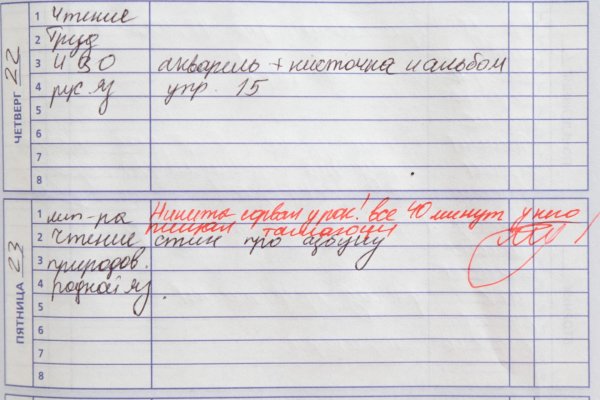 ЧЕТВЕРГ 22
1 Чтение
2 Труд
3 ИЗО акварель + кисточка и альбом
4 рус. яз упр. 15
5
6
7
8
ПЯТНИЦА 23
1 лит-ра Никита сорвал урок! все 40 минут у него
пищал тамагочи
2 Чтение стих про
3 природов.
4 родной яз.
5
6
7
8